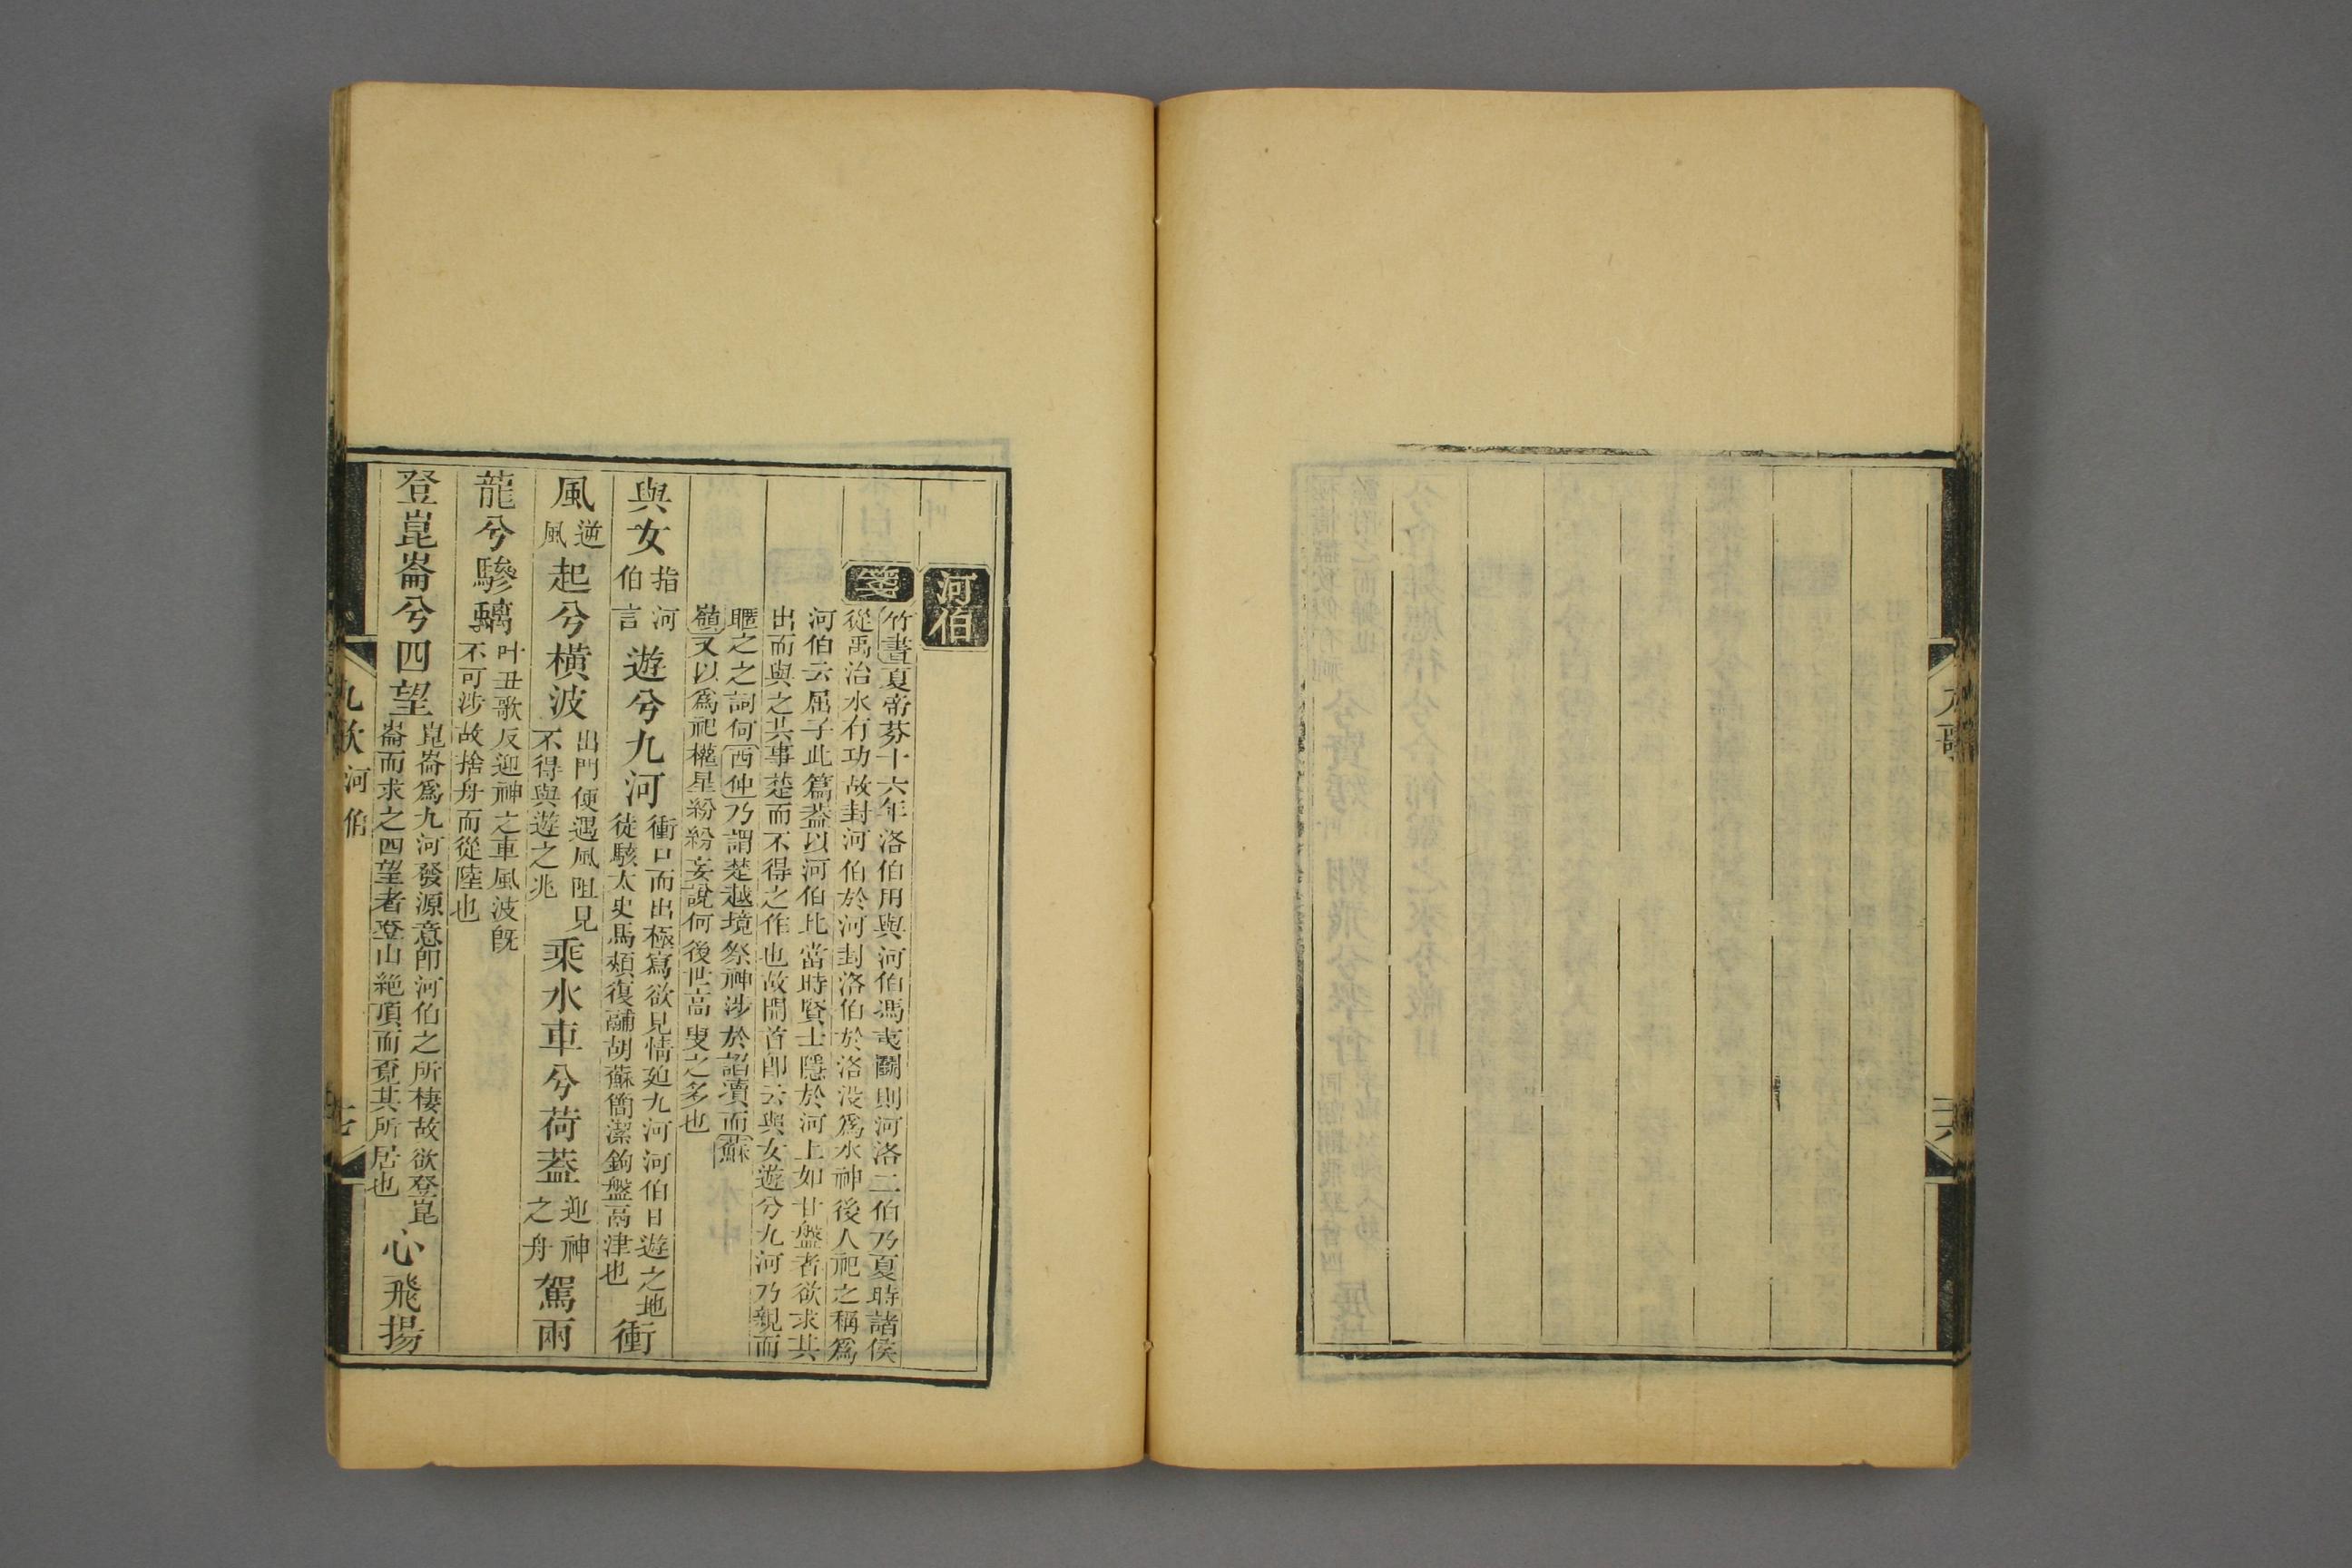 九歌
十六
河伯
箋
竹書夏帝芬十六年洛伯用與河伯馮夷鬭則河洛二伯乃夏時諸侯
從禹治水有功故封河伯於河封洛伯於洛没爲水神後人祀之稱爲
河伯云屈子此篇葢以河伯比當時賢士隱於河上如甘盤者欲求其
出而與之共事楚而不得之作也故開首即云與女遊兮九河乃親而
暱之之詞何西仲乃謂楚越境祭神涉於諂瀆而蘇
嶺又以爲祀權星紛紛妄說何後世高叟之多也
與女指河伯言遊兮九河衝口而出極寫欲見情𣆀九河河伯日遊之地徒駭太史馬頰復鬴胡蘇簡潔鉤盤鬲津也衝
風逆風起兮橫波出門便遇風阻見不得與遊之兆乘水車兮荷葢迎神之舟駕兩
龍兮驂螭叶丑歌反迎神之車風波旣不可涉故捨舟而從陸也
登崑崙兮四望崑崙爲九河發源意卽河伯之所棲故欲登崑崙而求之四望者登山絕頂而覓其所居也心飛揚
九歌 河伯
十七